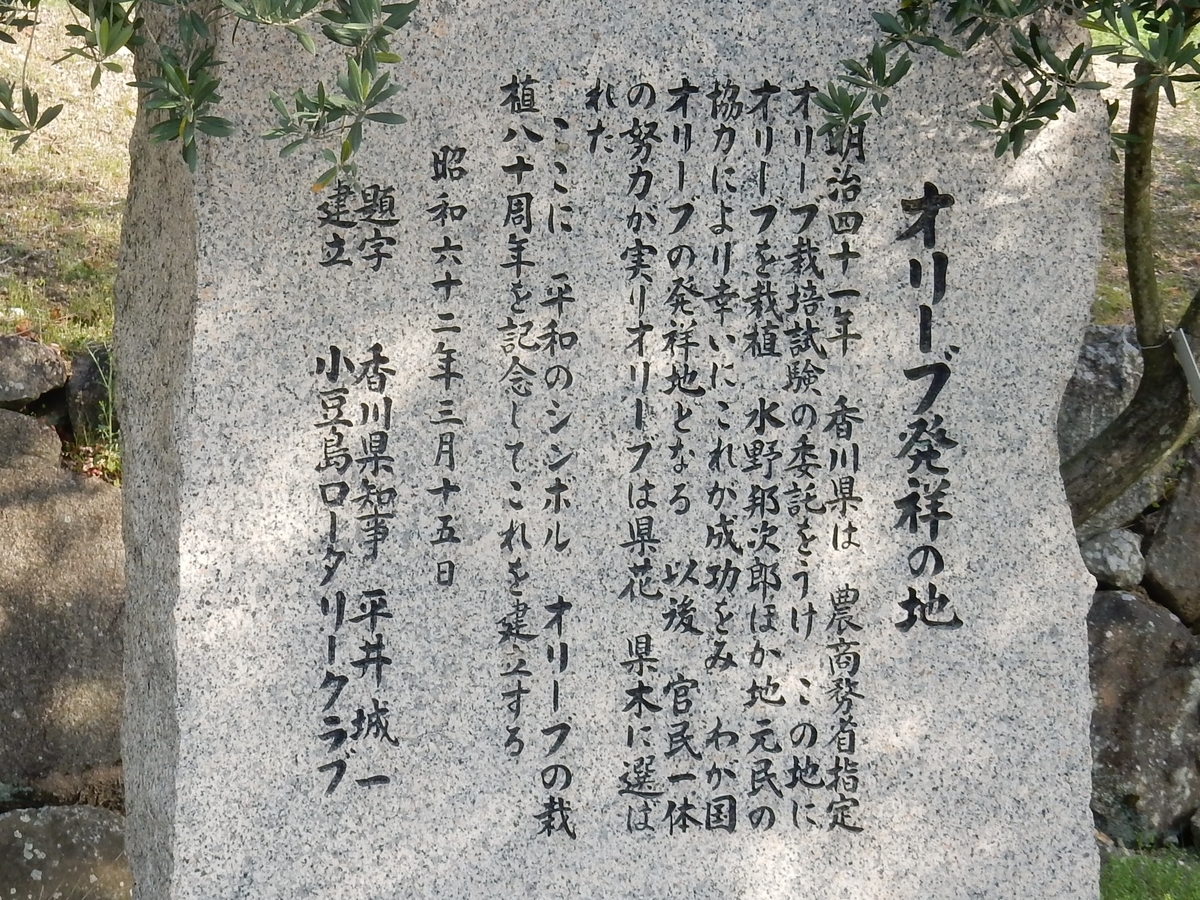 オリーブ発祥の地
明治四十一年 香川県は 農商務省指定
オリーブ栽培試験の委託をうけ この地に
オリーブを栽植 水野郑次郎ほか地元民の
協力により幸いにこれが成功をみ わが国
オリーブの発祥地となる 以後 官民一体
の努力が実りオリーブは県花 県木に選ば
れた
ここに 平和のシンボル オリーブの栽
植八十周年を記念してこれを建立する
昭和六十二年三月十五日
題字 香川県知事 平井城一
建立 小豆島ロータリークラブ